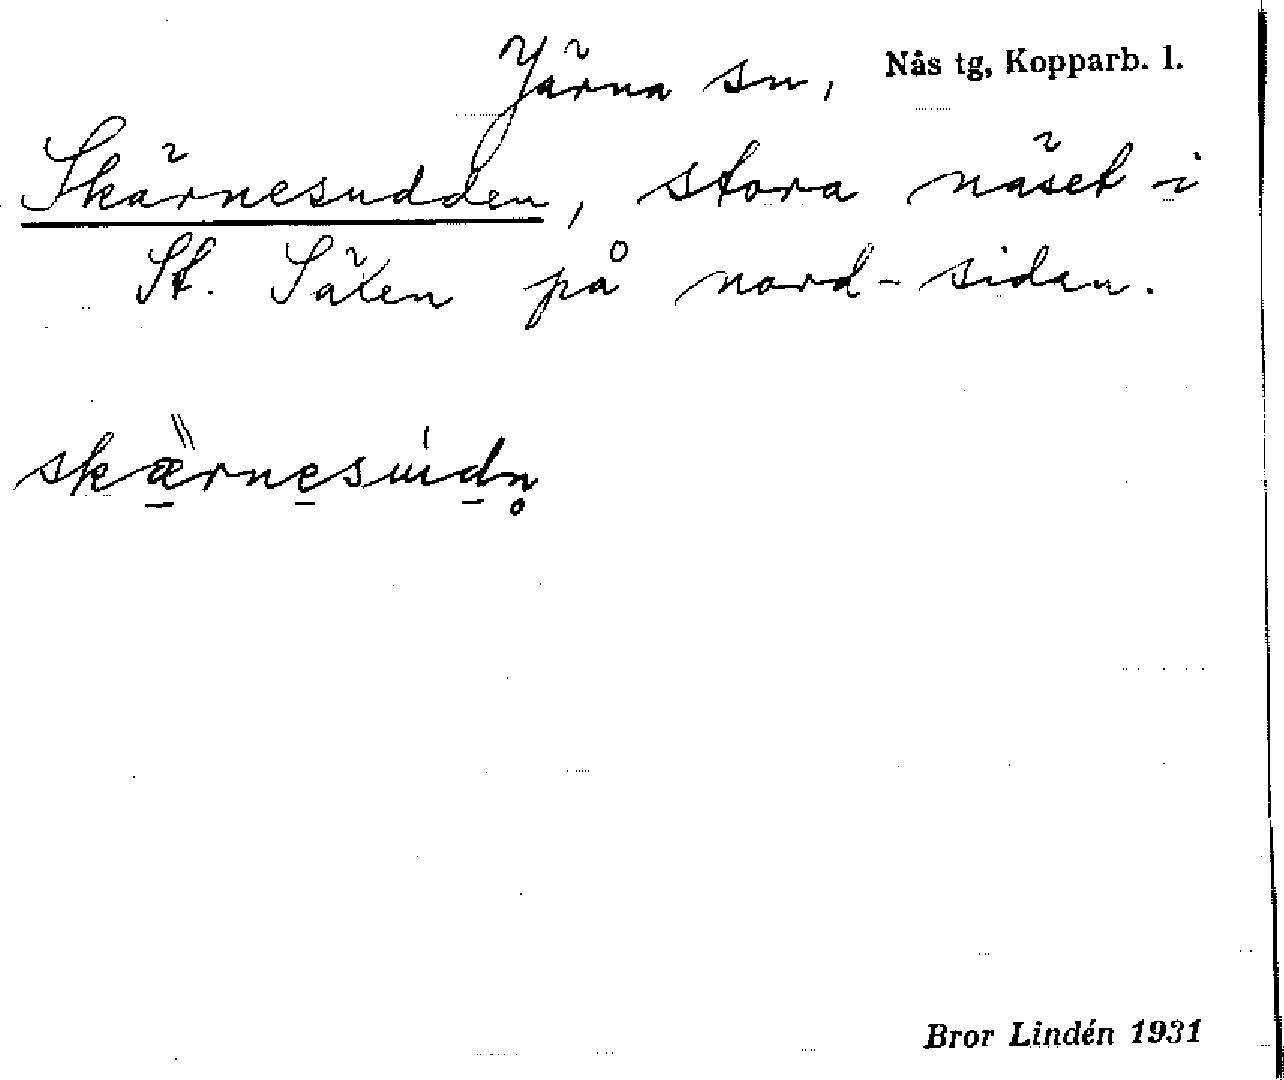 Järna sn, Nås tg, Kopparb. l.
Skärnesudden, stora näset i
St. Säxen på nord-sidan.
skæ̀rnesuidn̥
Bror Lindén 1931